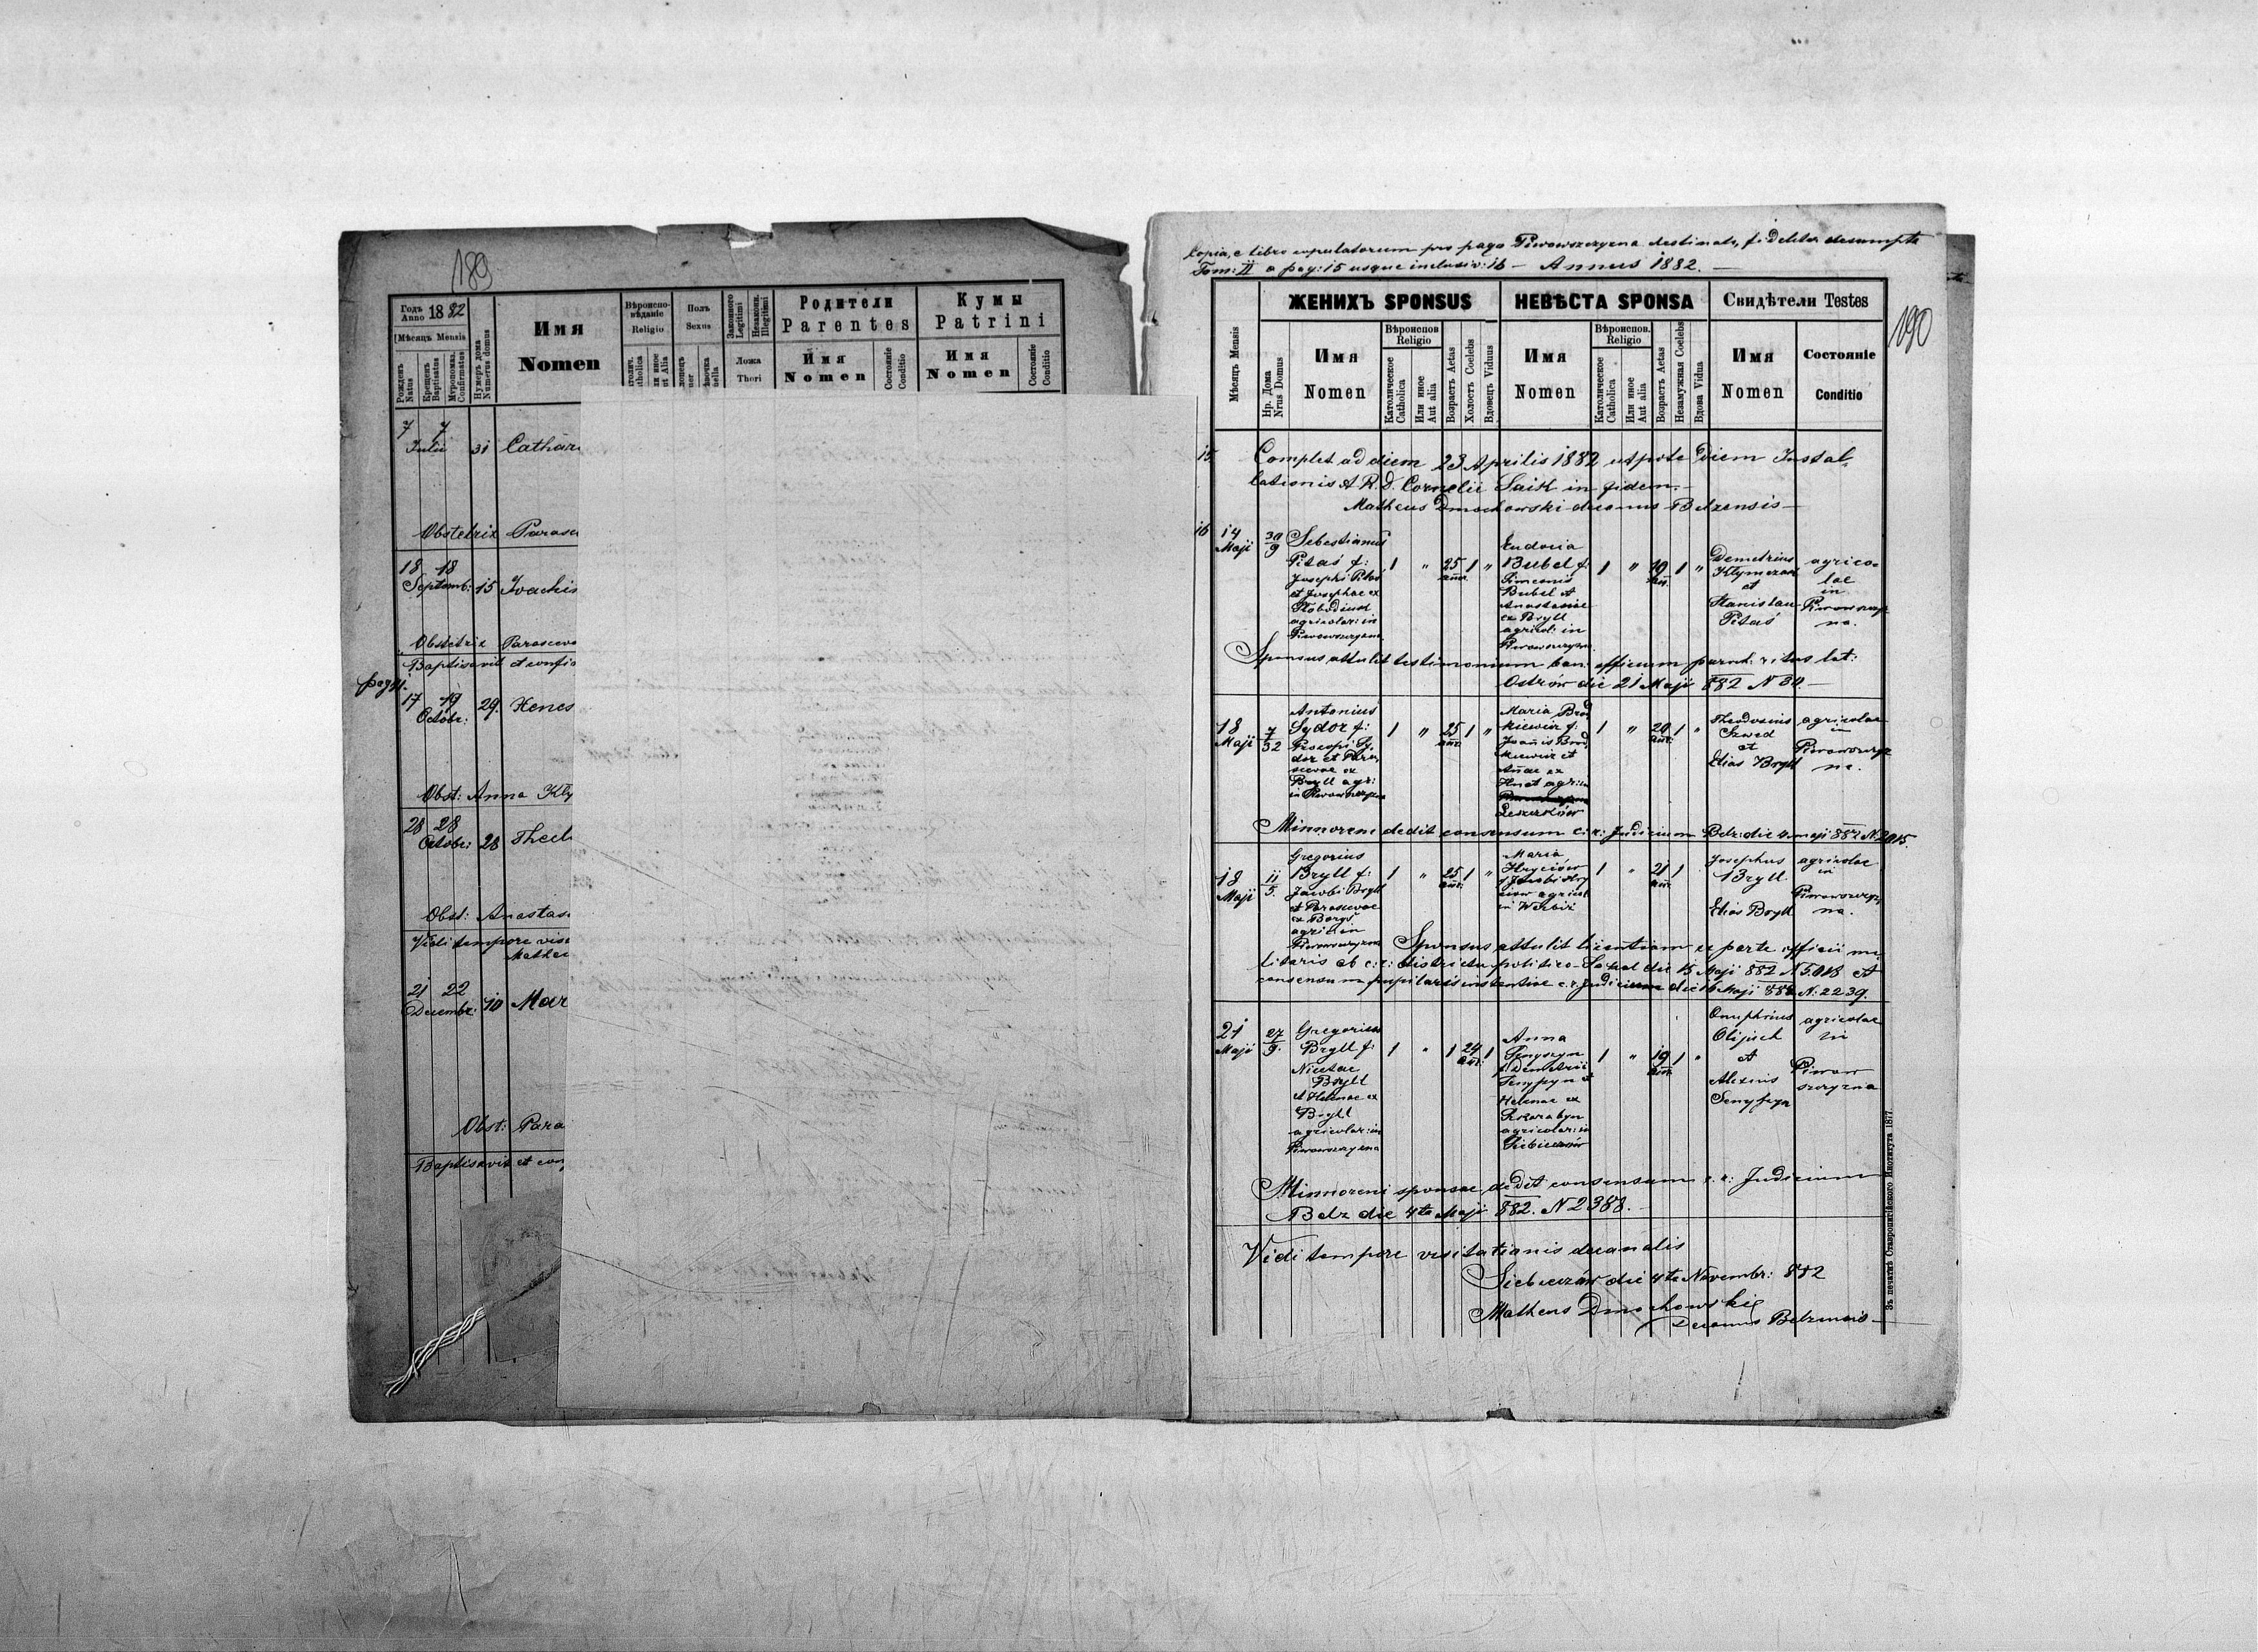 189
Годъ Anno 1882
Мѣсяцъ Mensis
Рожденъ Natus
Крещенъ Baptisatus
Мѵропомаз. Confirmatus
Нумеръ дома Numerus domus
Имя
Nomen
Вѣроиспо-
вѣданіе
Religio
Полъ
Sexus
Законного Legitimi
Незаконн. Illegitimi
Ложа
Thori
Родители
Parentes
Имя
Nomen
Состояніе
Conditio
Кумы
Patrini
Имя
Nomen
Состояніе
Conditio
7 7
Julii 31 Cathar
Obstetrix Parasc
18 18
Septemb: 15 Joachi
Obstetrix Parascev
Baptisavit et confi
17 19
Octobr: 29.
Obst: Anna Kly
28 28
Octobr: 28 Thecl
Obst: Anastas
Vidi tempore visi
Mathe
21 22
Decembr: 10 Mar
Obst: Para
Baptisavit et con
Copia, e libro copulatorum pro pago Piwowszczyzna destinato, fideliter desumpta
Tom: II a pag: 15 usque inclusiv: 16 — Annus 1882. —
190
Мѣсяцъ Mensis
Нр. Дома
Nrus Domus
ЖЕНИХЪ SPONSUS
Имя
Nomen
Вѣроиспов
Religio
Католическое
Catholica
Или иное
Aut alia
Возрастъ Aetas
Холостъ Coelebs
Вдовецъ Viduus
НЕВѢСТА SPONSA
Имя
Nomen
Вѣроиспов.
Religio
Католическое
Catholica
Или иное
Aut alia
Возрастъ Aetas
Незамужная Coelebs
Вдова Vidua
Свидѣтели Testes
Имя
Nomen
Состояніе
Conditio
15. Complet ad diem 23 Aprilis 1882 utpote Diem Instal-
lationis A. R. D. Cornelii in fidem.—
Matheus Dmochowski decanus Belzensis—
16
14
Maji
30
9
Sebestianus
Pitaś f:
Josephi Pitaś
et Josephae ex
agricolar: in
Piwowszczyzna
1 " 25 1 "
ann.
Eudocia
Bubel f.
Simeonis
Bubel et
Anastasiae
ex Bryll
agricol: in
Piwowszczyzna
1 " 19 1 "
Demetrius
Klymczak
et
Stanislau
Pitaś
agrico-
lae
in
Piwowszczyz
na.
Sponsus attulit testimonium ban: officium paroch: ritus lat:
Ostrów die 21 Maji 882 N 30.—
18
Maji
7
32
Antonius
Sydor f:
Procopi Sy-
dor et Paras
cevae ex
Bryll agr:
in Piwowszczyzna
1 " 25 1 "
Maria Brod
kiewicz f:
Joannis Brod
kiewicz et
Annae ex
Hnat agr: in
1 " 20 1 "
Theodosius
Szwed
et
Elias Bryll
agricolae
in
Piwowszczyz
na.
Minnoreni dedit consensum c: r: Judicium Belz: die 4 maji 882 N. 2015.
18
Maji
11
5.
Gregorius
Bryll f:
Jacobi Bryll
et Parascevae
agricol: in
Piwowszczyzna
1 " 25 1 "
Maria
Hryciów
f. Jacobi Hry
ciów agricol
in Werbiż
1 " 21 1
Josephus
Bryll
Elias Bryll
agricolae
in
Piwowszczyz
na.
Sponsus attulit licentiam ex parte officii mi-
litaris ab c: r: districtu politico— Sokal die 15 Maji 882 N 5.018 et
consensum pupilaris instantiae c. r. Judicium die 16 Maji 882 N: 2239.
21
Maji
27
9.
Gregorius
Bryll f:
Nicetae
Bryll
et Helenae ex
Bryll
agricolar: in
Piwowszczyzna
1 " 1 24 1
Anna
f. Demetrii
Helenae ex
agricolar: in
Siebieczów
1 " 19 1 "
Onuphrius
Olijnek
et
Alexius
agricolae
in
Piwow
szczyzna
Minnoreni sponsae dedit consensum c. r: Judicium
Belz die 4ta Maji 882. N 2388.—
Vidi tempore visitationis decanalis
Siebieczów die 4ta Novembr: 882
Matheus Dmochowski
Decanus Belzensis—
Зъ печатнѣ Ставропигійского Института 1877.